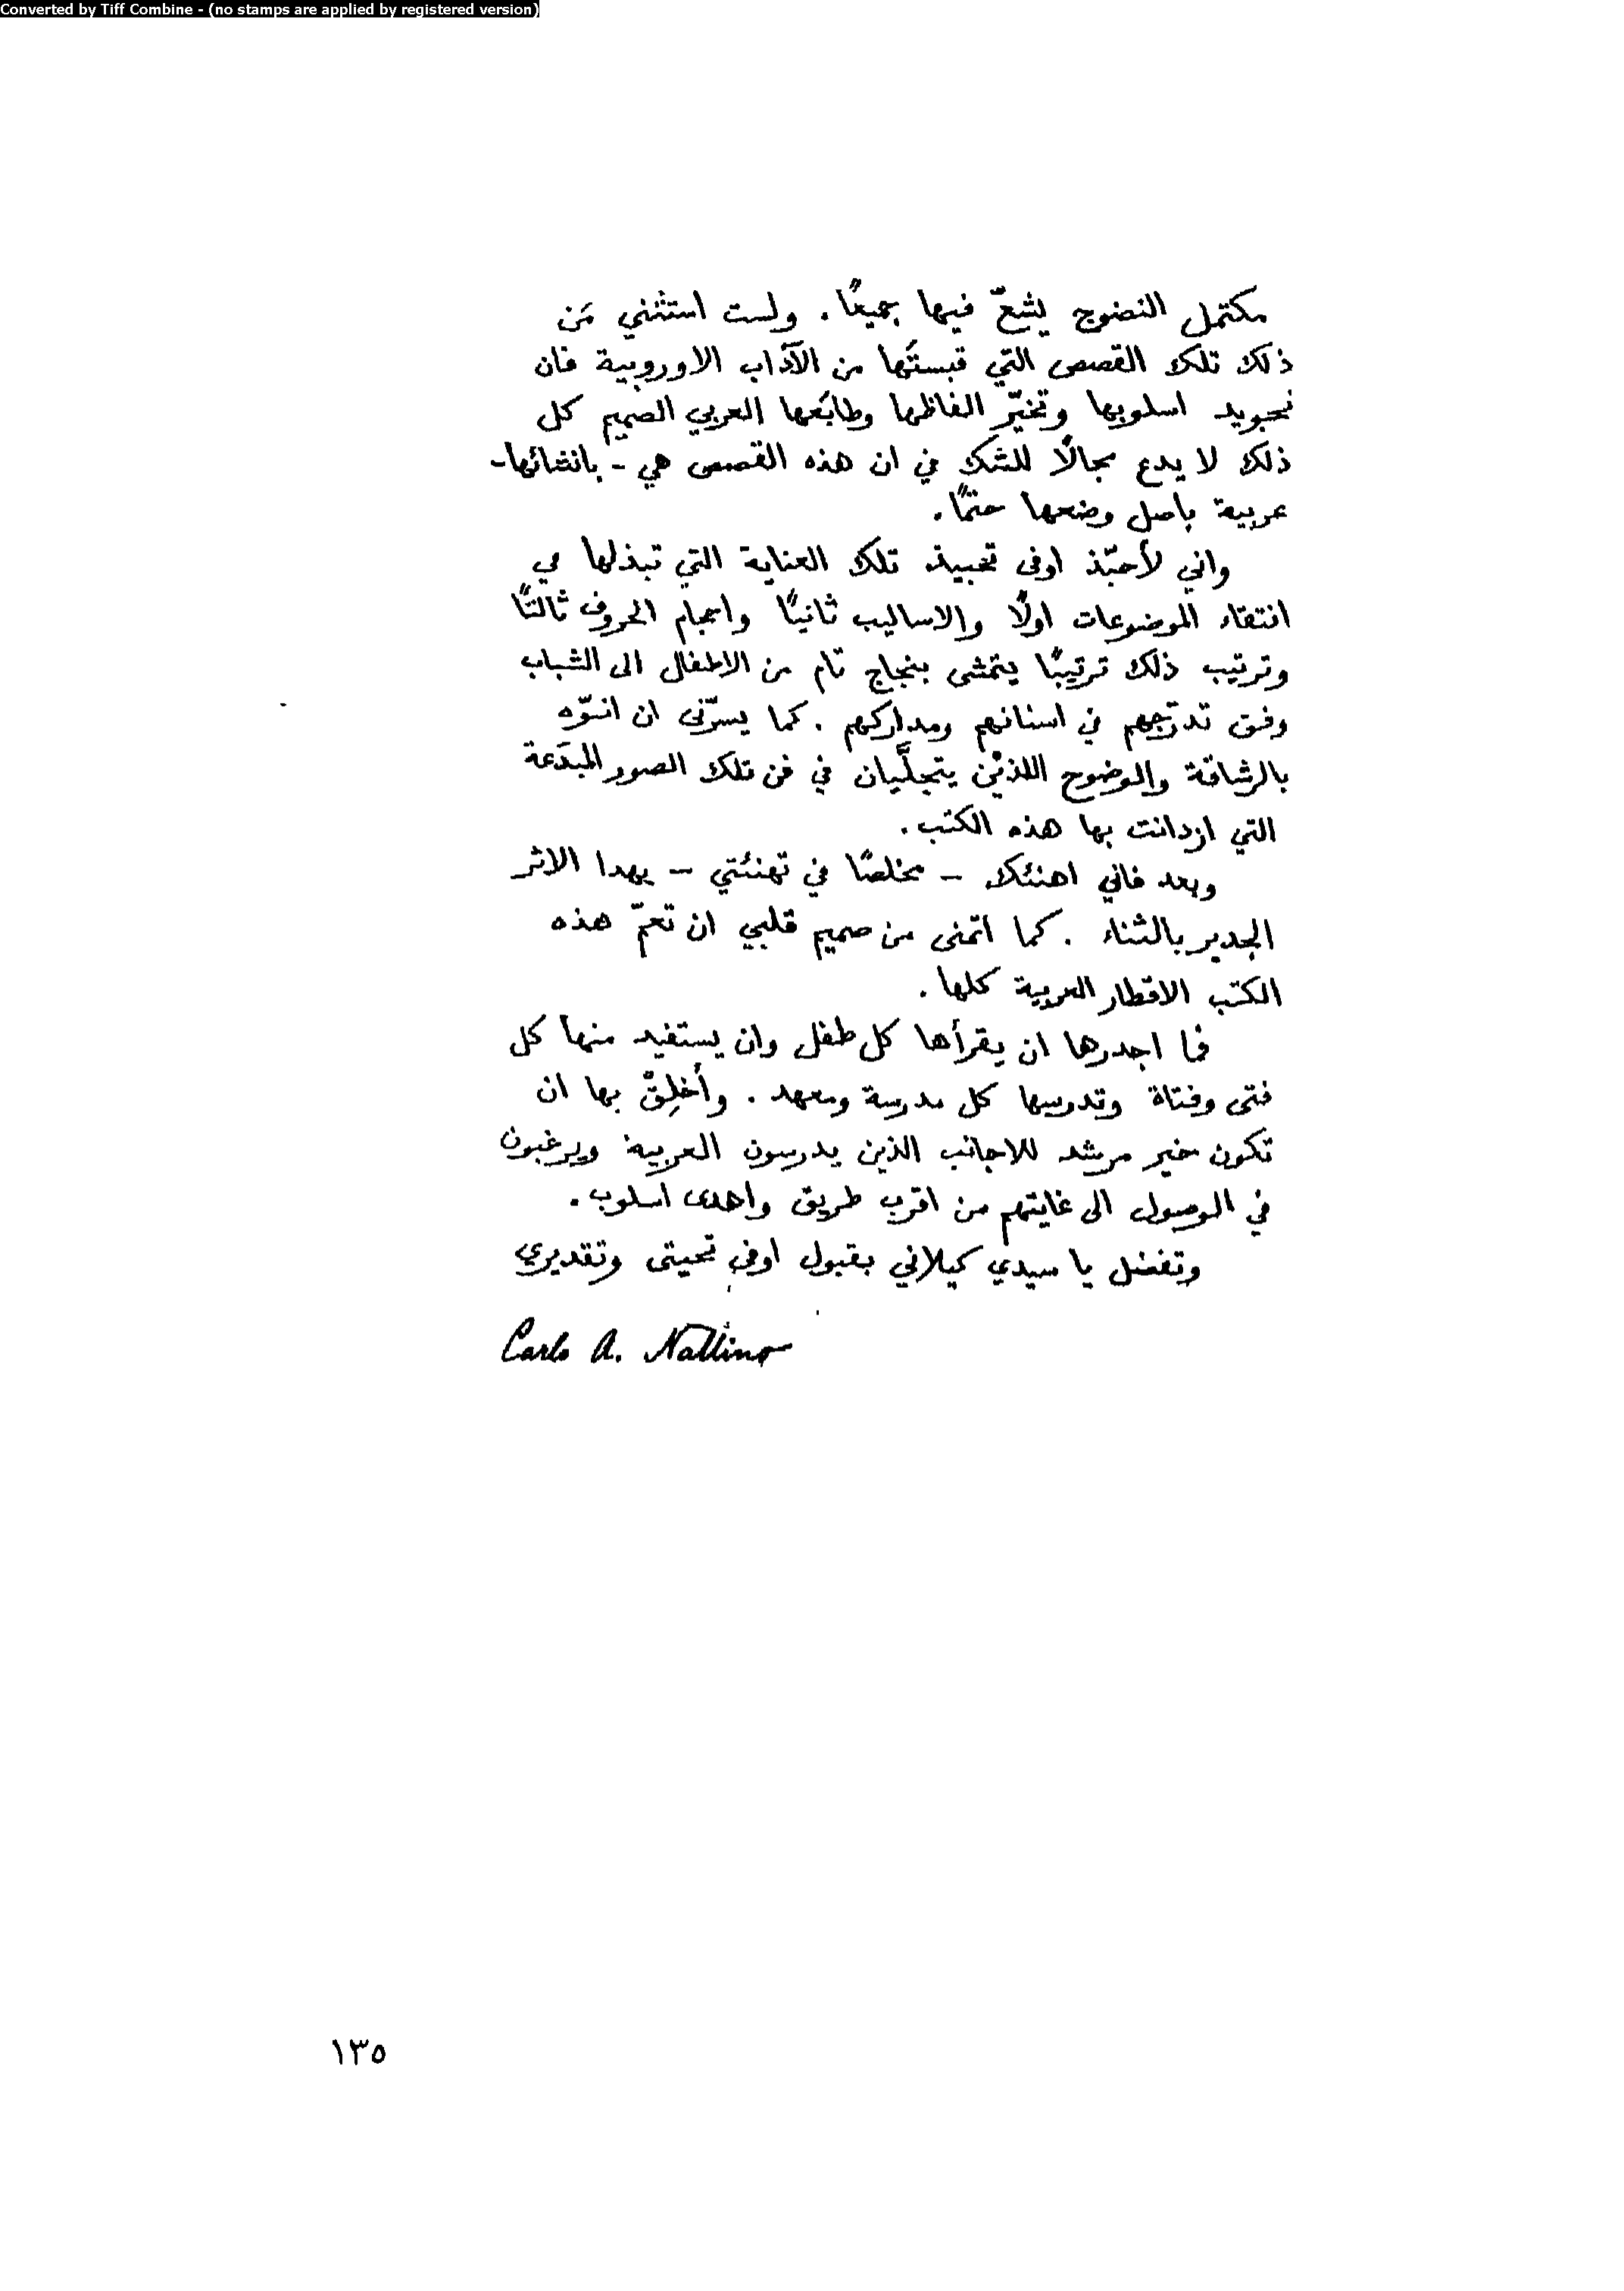 Converted by Tiff Combine - (no stamps are applied by registered version)
مكتمل النضوج يشعّ فيها جميعًا . ولست استثني مَن
ذلك تلك القصص التي قبستَها من الآداب الاوروبية فان
تجويد اسلوبها وتخيّر الفاظها وطابَعها العربي الصميم كل
ذلك لا يدع مجالًا للشك في ان هذه القصص هي - بانشائها -
عربية باصل وضعها حتمًا .
واني لأحبّذ اوفى تحبيذ تلك العناية التي تبذلها في
انتقاء الموضوعات اولًا والاساليب ثانيًا واعجام الحروف ثالثًا
وترتيب ذلك ترتيبًا يتمشى بنجاح تام من الاطفال الى الشباب
وفق تدرّجهم في اسنانهم ومداركهم . كما يسرّني ان انوّه
بالرشاقة والوضوح اللذيْن يتجلَّيان في فن تلك الصور المبدَعة
التي ازدانت بها هذه الكتب .
وبعد فاني اهنئك - مخلصًا في تهنئتي - بهذا الاثر
الجدير بالثناء . كما اتمنى من صميم قلبي ان تعمّ هذه
الكتب الاقطار العربية كلها .
فما اجدرها ان يقرأها كل طفل وان يستفيد منها كل
فتى وفتاة وتدرسها كل مدرسة ومعهد . وأخلِقْ بها ان
تكون خير مرشد للاجانب الذين يدرسون العربية ويرغبون
في الوصول الى غايتهم من اقرب طريق واهدى اسلوب .
وتفضل يا سيدي كيلاني بقبول اوفى تحيتى وتقديري
Carlo A. Nallino
١٣٥